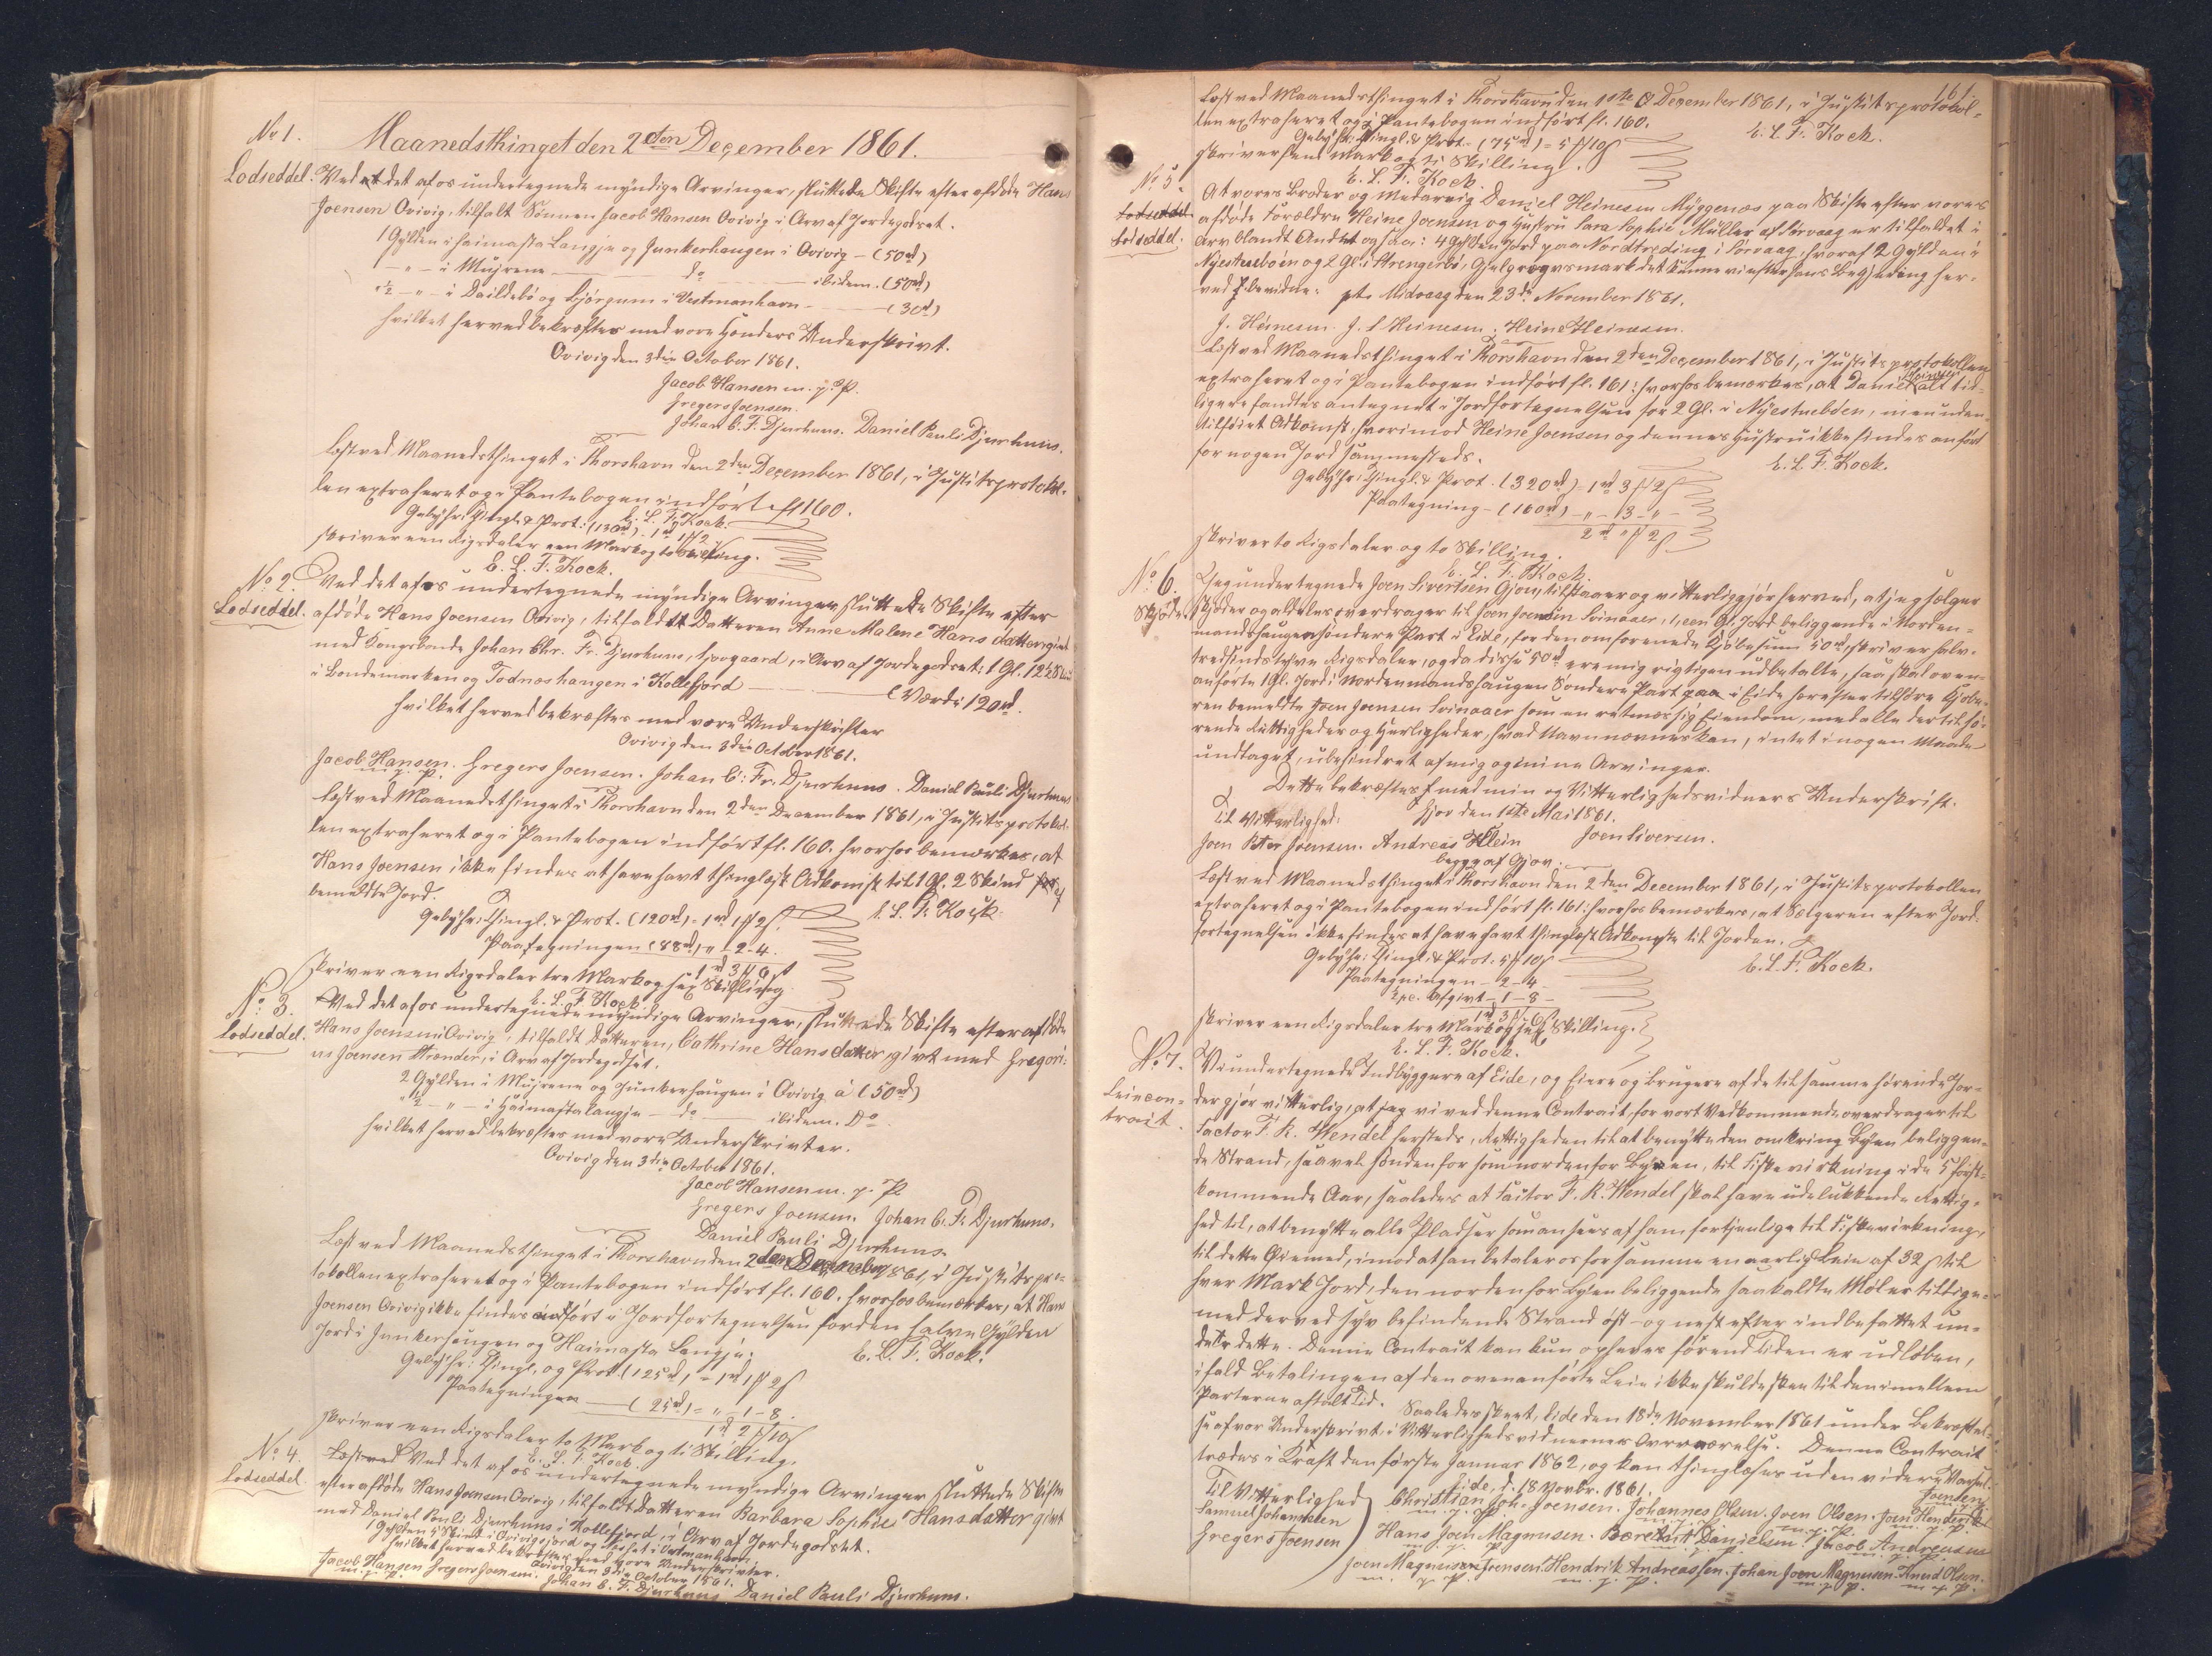 No 1.
Maanedsthinget den 2den December 1861.
Lodseddel. Ved det af os undertegnede myndige Arvinger, sluttede Skifte efter afdøde Hans
Joensen Qvivig, tilfalt Sønnen Jacob Hansen Qvivig i Arv af Jordegodset.
1 Gylden i Heimasta Langja og Junkerhaugen i Qvivig - (50rd)
- " - i Mujrene - do - ibidem. (50rd)
" ½ - " - i Daildebø og Gjørgum i Vestmanhavn - (30rd)
hvilket herved bekræftes med vore Hænders Underskrivt.
Qvivig den 3die October 1861.
Jacob Hansen m. p. P.
Gregers Joensen.
Johan C. F. Djurhuus. Daniel Pauli Djurhuus.
Læst ved Maanedsthinget i Thorshavn den 2den December 1861, i Justitsprotokol-
len extraheret og i Pantebogen indført fl 160.
E. L. F. Kock.
Gebyhr: Thingl. & Prot: (130rd) - 1rd 1 ꝳ 2 ß
skriver een Rigsdaler een Mark og to Skilling.
E. L. F. Kock.
No 2. Ved det af os undertegnede myndige Arvinger sluttede Skifte efter
Lodseddel. afdøde Hans Joensen Qvivig, tilfaldt Datteren Anne Malene Hansdatter givt
med Kongsbonde Johan Chr. Fr. Djurhuus, i Arv af Jordegodset: 1 Gl. 12 Skind
i Bondemarken og Todnæshaugen i Kollefjord - (Værdi 120rd.
hvilket herved bekræftes med vore Underskrifter
Qvivig den 3die October 1861.
Jacob Hansen. Gregers Joensen. Johan C. Fr. Djurhuus. Daniel Pauli Djurhuus
m. p. P.
Læst ved Maanedsthinget i Thorshavn den 2den December 1861, i Justitsprotokol-
len extraheret og i Pantebogen indført fl. 160. hvorhos bemærkes, at
Hans Joensen ikke findes at have havt thinglæst Adkomst til 1 Gl. 2 Skind af
bemeldte Jord.
E. L. F. Kock.
Gebyhr: Thingl. & Prot. (120rd) = 1rd 1 ꝳ 2 ß
Paategningen (88rd) " - 2 - 4.
1rd 3 ꝳ 6 ß
skriver een Rigsdaler tre Mark og sex Skilling.
E. L. F. Kock.
No 3. Ved det af os undertegnede myndige Arvinger, sluttede Skifte efter afdøde
Lodseddel. Hans Joensen Qvivig, tilfaldt Datteren, Cathrine Hansdatter, givt med Gregori-
us Joensen Strender, i Arv af Jordegodset.
2 Gylden i Mujrene og Junkerhaugen i Qvivig á (50rd)
" ½ - " - i Haimastalangja - do - ibidem. Do
hvilket herved bekræftes med vore Underskrivter.
Qvivig den 3die October 1861.
Jacob Hansen m. p. P.
Gregers Joensen. Johan C. F. Djurhuus.
Daniel Pauli Djurhuus.
Læst ved Maanedsthinget i Thorshavn den 2den December 1861, i Justitspro-
tokollen extraheret og i Pantebogen indført fl. 160. hvorhos bemærkes, at Hans
Joensen Qvivig ikke findes anført i Jordfortegnelsen for den halve Gylden
Jord i Junkerhaugen og Haimasta Langja.
E. L. F. Kock.
Gebyhr: Thingl. og Prot. (125rd) = 1rd 1 ꝳ 2 ß
Paategningen - (25rd) = " - 1 - 8.
1rd 2 ꝳ 10 ß
skriver een Rigsdaler to Mark og ti Skilling.
E. L. F. Kock.
No 4. Læst ved Ved det af os undertegnede myndige Arvinger sluttede Skifte
Lodseddel. efter afdøde Hans Joensen Qvivig, tilfaldt Datteren Barbara Sophie Hansdatter givt
med Daniel Pauli Djurhuus i Kollefjord, i Arv af Jordegodset.
1 Gylden 5 Skind i Qvivigsjord og i Vestmanhavn.
hvilket herved bekræftes med vore Underskrivter.
Qvivig den 3die October 1861.
Jacob Hansen Gregers Joensen. Johan C. F. Djurhuus. Daniel Pauli Djurhuus.
m. p. P.
161.
Læst ved Maanedsthinget i Thorshavn den December 1861, i Justitsprotokol-
len extraheret og i Pantebogen indført fl. 160.
E. L. F. Kock.
Gebyhr: Thingl. & Prot. - (75rd) = 5 ꝳ 10 ß
skriver fem Mark og ti Skilling.
E. L. F. Kock.
No 5. At vores Broder og Medarving Daniel Heinesen Myggenæs paa Skifte efter vores
Lodseddel afdøde Forældre Heine Joensen og Hustru Sara Sophie Müller af Sørvaag er tilfaldet i
Lodseddel. Arv blandt Andet ogsaa: 4 Gylden Jord paa Nordtreding i Sørvaag, hvoraf 2 Gylden i
Nyestuebøen og 2 Gl. i Strengerbø, det kunne vi efter hans Begjæring her-
ved bevidne. pt. Midvaag den 23de November 1861.
J. Heinesen. J. S Heinesen. Heine Heinesen.
Læst ved Maanedsthinget i Thorshavn den 2den December 1861, i Justitsprotokollen
extraheret og i Pantebogen indført fl. 161: hvorhos bemærkes, at Daniel Heinesen alt tid-
ligere fandtes antegnet i Jordfortegnelsen for 2 Gl. i Nyestuebøen, men uden
tilføiet Adkomst, hvorimod Heine Joensen og dennes Hustru ikke findes anført
for nogen Jord sammesteds.
E. L. F. Kock.
Gebyhr: Thingl. & Prot. (320rd) = 1rd 3 ꝳ 2 ß
Paategning - (160rd) - " - 3 - " -
2rd " ꝳ 2 ß
skriver to Rigsdaler og to Skilling.
E. L. F. Kock.
No 6. Jeg undertegnede Joen Sivertsen Gjov, tilstaaer og vitterliggjør herved, at jeg sælger
Skjøde. skjøder og aldeles overdrager til Joen Joensen Svinaaer, 1, een Gl. Jord beliggende i Norden-
mandshaugen søndere Part i Eide, for den omforenede Kjøbesum 50rd, skriver halv-
tredsindstyve Rigsdaler, og da disse 50rd ere mig rigtigen udbetalte, saa skal oven-
anførte 1 Gl. Jord i Nordenmandshaugen Søndere Part paa i Eide herefter tilhøre Kjøbe-
ren bemeldte Joen Joensen Svinaaer som en retmæssig Eiendom, med alle dertil hø-
rende Rettigheder og Herligheder, hvad Navn nævnes kan, intet i nogen Maade
undtaget, ubehindret af mig og mine Arvinger.
Dette bekræftes med min og Vitterlighedsvidners Underskrift.
Gjov den 1ste Mai 1861.
Til Vitterlighed:
Joen Siversen.
Joen Petter Joensen. Andreas Klein
begge af Gjov.
Læst ved Maanedsthinget i Thorshavn den 2den December 1861, i Justitsprotokollen
extraheret og i Pantebogen indført fl. 161: hvorhos bemærkes, at Sælgeren efter Jord-
fortegnelsen ikke findes at have havt thinglæst Adkomst til Jorden.
E. L. F. Kock.
Gebyhr: Thingl. & Prot. 5 ꝳ 10 ß
Paategningen - 2 - 4
½ pc. Afgivt - 1 - 8 -
1rd 3 ꝳ 6 ß
skriver een Rigsdaler tre Mark og sex Skilling.
E. L. F. Kock.
No 7. Vi undertegnede Indbyggere af Eide, og Eiere og Brugere af de til samme hørende Jor-
Leiecon- der gjør vitterlig, at vi ved denne Contrait, for vort Vedkommende overdrager til
trait. Factor F. R. Wendel hersteds, Rettigheden til at benytte den omkring Byen beliggen-
de Strand, saavel søndenfor som nordenfor Byen, til Fiskevirkning i de 5 først-
kommende Aar, saaledes at Factor F. R. Wendel skal have udelukkende Rettig-
hed til, at benytte alle Pladser som ansees af ham fortjenlige til Fiskevirkning,
til dette Øiemed, imod at han betaler os for samme en aarlig Leie af 32 ß til
hver Mark Jord, den nordenfor Byen beliggende saakaldte Møler tillige-
med derved befindende Strand øst - og efter indbefattet un-
der dette. Denne Contrait kan kun ophæves førend Tiden er udløben,
ifald Betalingen af den ovenanførte Leie ikke skulde skee til den imellem
Parterne aftalt Tid. Saaledes skeet, Eide den 18de November 1861 under Bekræftel-
se af vor Underskrivt i Vitterlighedsvidnernes Overværelse. Denne Contrait
trædes i Kraft den første Januar 1862, og kan thinglæses uden videre Varsel.
Eide, d. 18 Novbr. 1861.
Til Vitterlighed Christian Joh. Joensen. Johannes Olsen. Joen Olsen. Joen Hendrik Joensen.
Samuel Johannesen m. p. P. m. p. P. m. p. P. m. p. P.
Gregers Joensen Hans Joen Magnusen. Danielsen. Jacob Andreasen
m. p. P. m. p. P. m. p. P.
Joen Magnussen Joensen. Hendrik Andreassen. Johan Joen Magnusen. Olsen.
m. p. P. m. p. P. m. p. P. m. p. P.